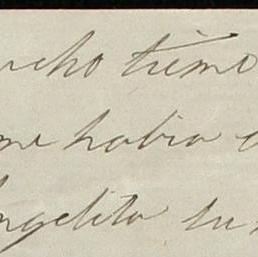 ucho tiemo
me habia
ngelita tu